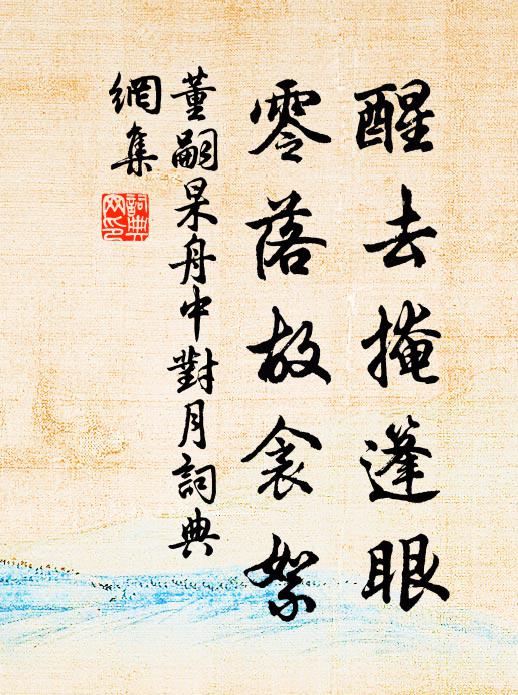 醒去掩篷眼
零落故衾絮
董嗣杲舟中對月詞典
網集
詞典
网印